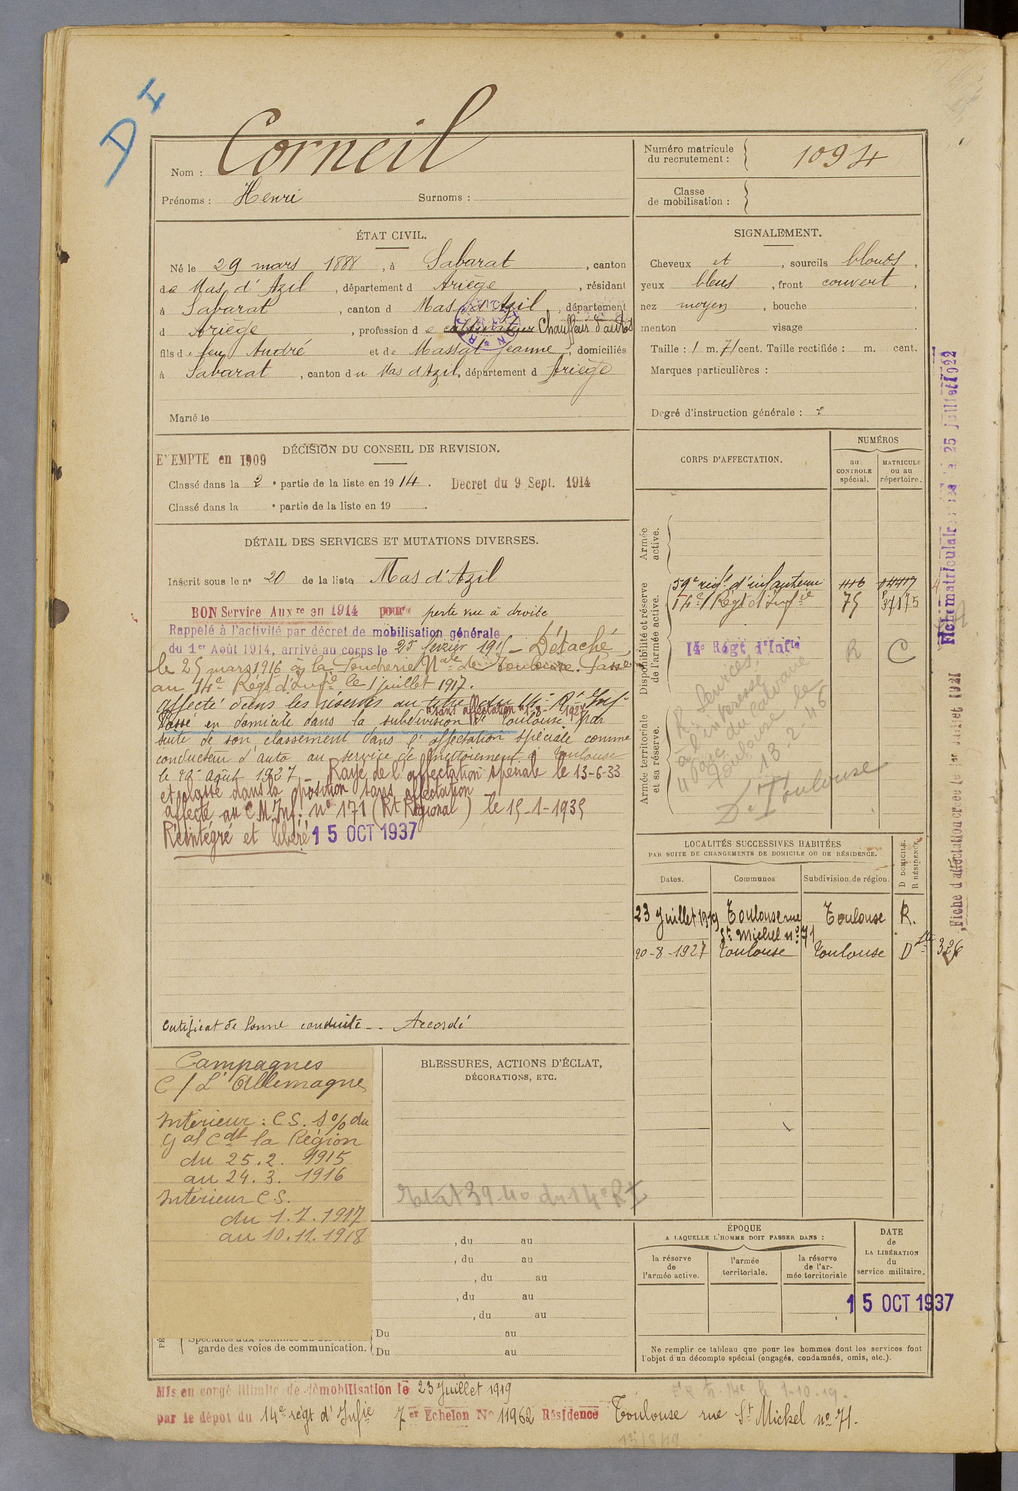 D 4
Nom : Corneil
Prénoms : Henri Surnoms :
Numéro matricule du recrutement : 1094
Classe de mobilisation :
ÉTAT CIVIL.
Né le 29 mars 1888, à Sabarat, canton
de Mas d'Azil, département d Ariège, résidant
à Sabarat, canton d Mas d'Azil, département
d Ariège, profession de cultivateur Chauffeur d'autos
fils de feu André et de Massat Jeanne, domiciliés
à Sabarat, canton du Mas d'Azil, département d Ariège
Marié le
SIGNALEMENT.
Cheveux et, sourcils blonds,
yeux bleus, front couvert,
nez moyen, bouche
menton visage
Taille : 1 m. 71 cent. Taille rectifiée : m. cent.
Marques particulières :
Degré d'instruction générale : 2
DÉCISION DU CONSEIL DE REVISION.
EXEMPTE en 1909
Classé dans la 2e partie de la liste en 1914. Decret du 9 Sept. 1914
Classé dans la e partie de la liste en 19
CORPS D'AFFECTATION.
NUMÉROS
au CONTROLE spécial.
MATRICULE ou au répertoire.
Armée active.
Disponibilité et réserve de l'armée active.
59e régt d'infanterie
14e Régt d'Infie
14e Régt d'Infie R C
Armée territoriale et sa réserve.
13-2-46
De Toulouse
DÉTAIL DES SERVICES ET MUTATIONS DIVERSES.
Inscrit sous le n° 20 de la liste Mas d'Azil
BON Service Auxre en 1914 pour perte vue à droite
Rappelé à l'activité par décret de mobilisation générale
du 1er Août 1914, arrivé au corps le 25 février 1915 – Détaché
le 25 mars 1916 à la Poudrerie Nale de Toulouse. Passé
au 14e Régt d'Infie le 1 juillet 1917.
Affecté dans les réserves au
Passé en domicile dans la subdivision de Toulouse par
suite de son classement dans l'affectation spéciale comme
conducteur d'auto au service de
le 20 août 1927 – Rayé de l'affectation spéciale le 13-6-33
et classé dans la position sans affectation
affecté au C.M. Inf. n° 171 (Rt Régional) le 15-1-1935
Réintégré et libéré 15 OCT 1937
Certificat de bonne conduite -- Accordé
Fiche matriculaire le 25 juillet 1922
Fiche d'affectation créée le 1er Juillet 1921
LOCALITÉS SUCCESSIVES HABITÉES
PAR SUITE DE CHANGEMENTS DE DOMICILE OU DE RÉSIDENCE.
Dates. Communes Subdivision de région. D DOMICILE. R RÉSIDENCE.
23 Juillet 1919 Toulouse rue St Michel n° 71 Toulouse R.
20-8-1927 Toulouse Toulouse D 326
Campagnes
C/ L'Allemagne
Intérieur : C.S. s% du
Gal Cdt la Région
du 25.2. 1915
au 24.3. 1916
Intérieur C S.
du 1.7.1917
au 10.11.1918
BLESSURES, ACTIONS D'ÉCLAT,
DÉCORATIONS, ETC.
, du au
, du au
, du au
, du au
, du au
garde des voies de communication.
Du au
Du au
ÉPOQUE
A LAQUELLE L'HOMME DOIT PASSER DANS :
la réserve de l'armée active.
l'armée territoriale.
la réserve de l'armée territoriale
DATE de LA LIBÉRATION du service militaire.
15 OCT 1937
Ne remplir ce tableau que pour les hommes dont les services font
l'objet d'un décompte spécial (engagés, condamnés, omis, etc.).
Mis en congé illimité de démobilisation le 23 Juillet 1919
par le dépôt du 14e régt d'Infie 7er Echelon No 11962 Résidence Toulouse rue St Michel n° 71.